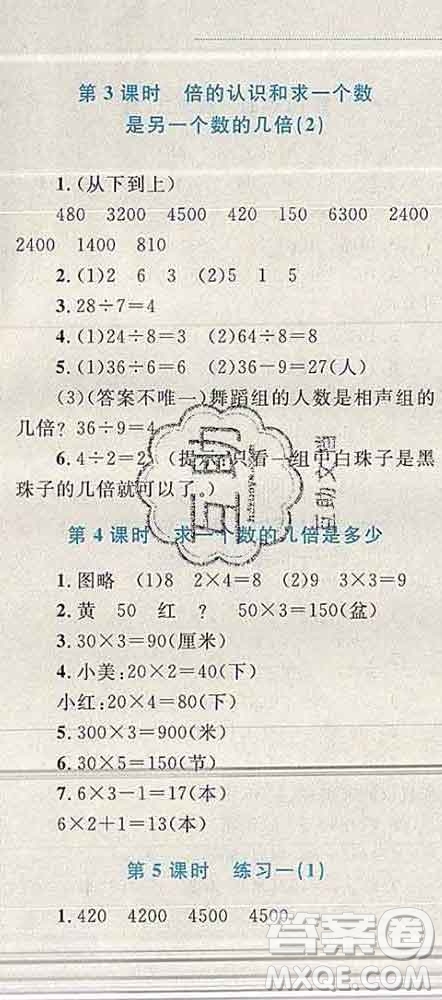 第3课时 倍的认识和求一个数
是另一个数的几倍(2)
1.(从下到上)
480 3200 4500 420 150 6300 2400
2400 1400 810
2.(1)2 6 3 (2)5 1 5
3.28÷7=4
4.(1)24÷8=3 (2)64÷8=8
5.(1)36÷6=6 (2)36-9=27(人)
(3)(答案不唯一)舞蹈组的人数是相声组的
几倍?36÷9=4
6.4÷2=2 (提示:只看一组中白珠子是黑
珠子的几倍就可以了。)
第4课时 求一个数的几倍是多少
1.图略 (1)8 2×4=8 (2)9 3×3=9
2.黄 50 红 ? 50×3=150(盆)
3.30×3=90(厘米)
4.小美:20×2=40(下)
小红:20×4=80(下)
5.300×3=900(米)
6.30×5=150(节)
7.6×3-1=17(本)
6×2+1=13(本)
第5课时 练习一(1)
1.420 4200 4500 4500
互助
互助文档
答案圈
MXQE.COM